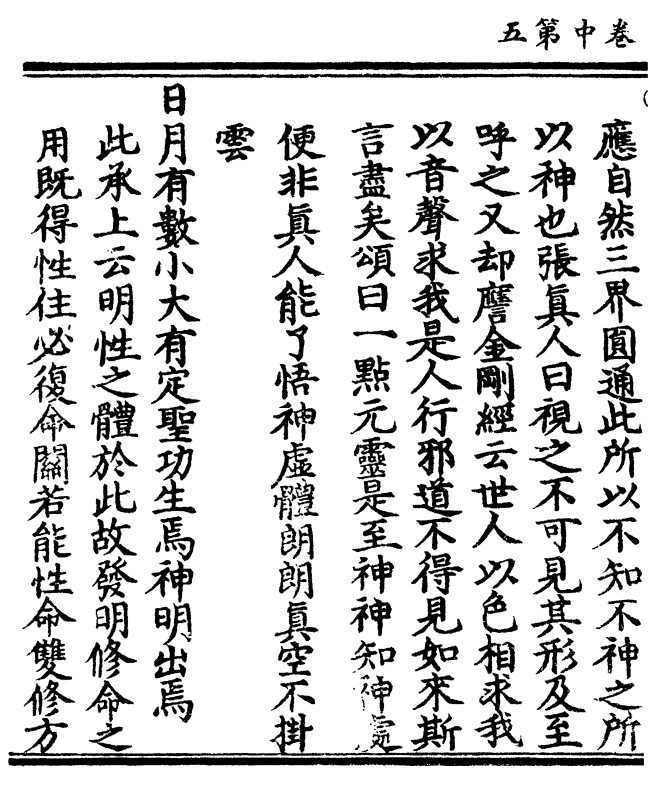 卷中第五
應自然三界圓通此所以不知不神之所
以神也張眞人曰視之不可見其形及至
呼之又却譍金剛經云世人以色相求我
以音聲求我是人行邪道不得見如來斯
言盡矣頌曰一點元靈是至神神知神處
便非眞人能了悟神虛體朗朗眞空不掛
雲
日月有數小大有定聖功生焉神明出焉
此承上云明性之體於此故發明修命之
用既得性住必復命關若能性命雙修方